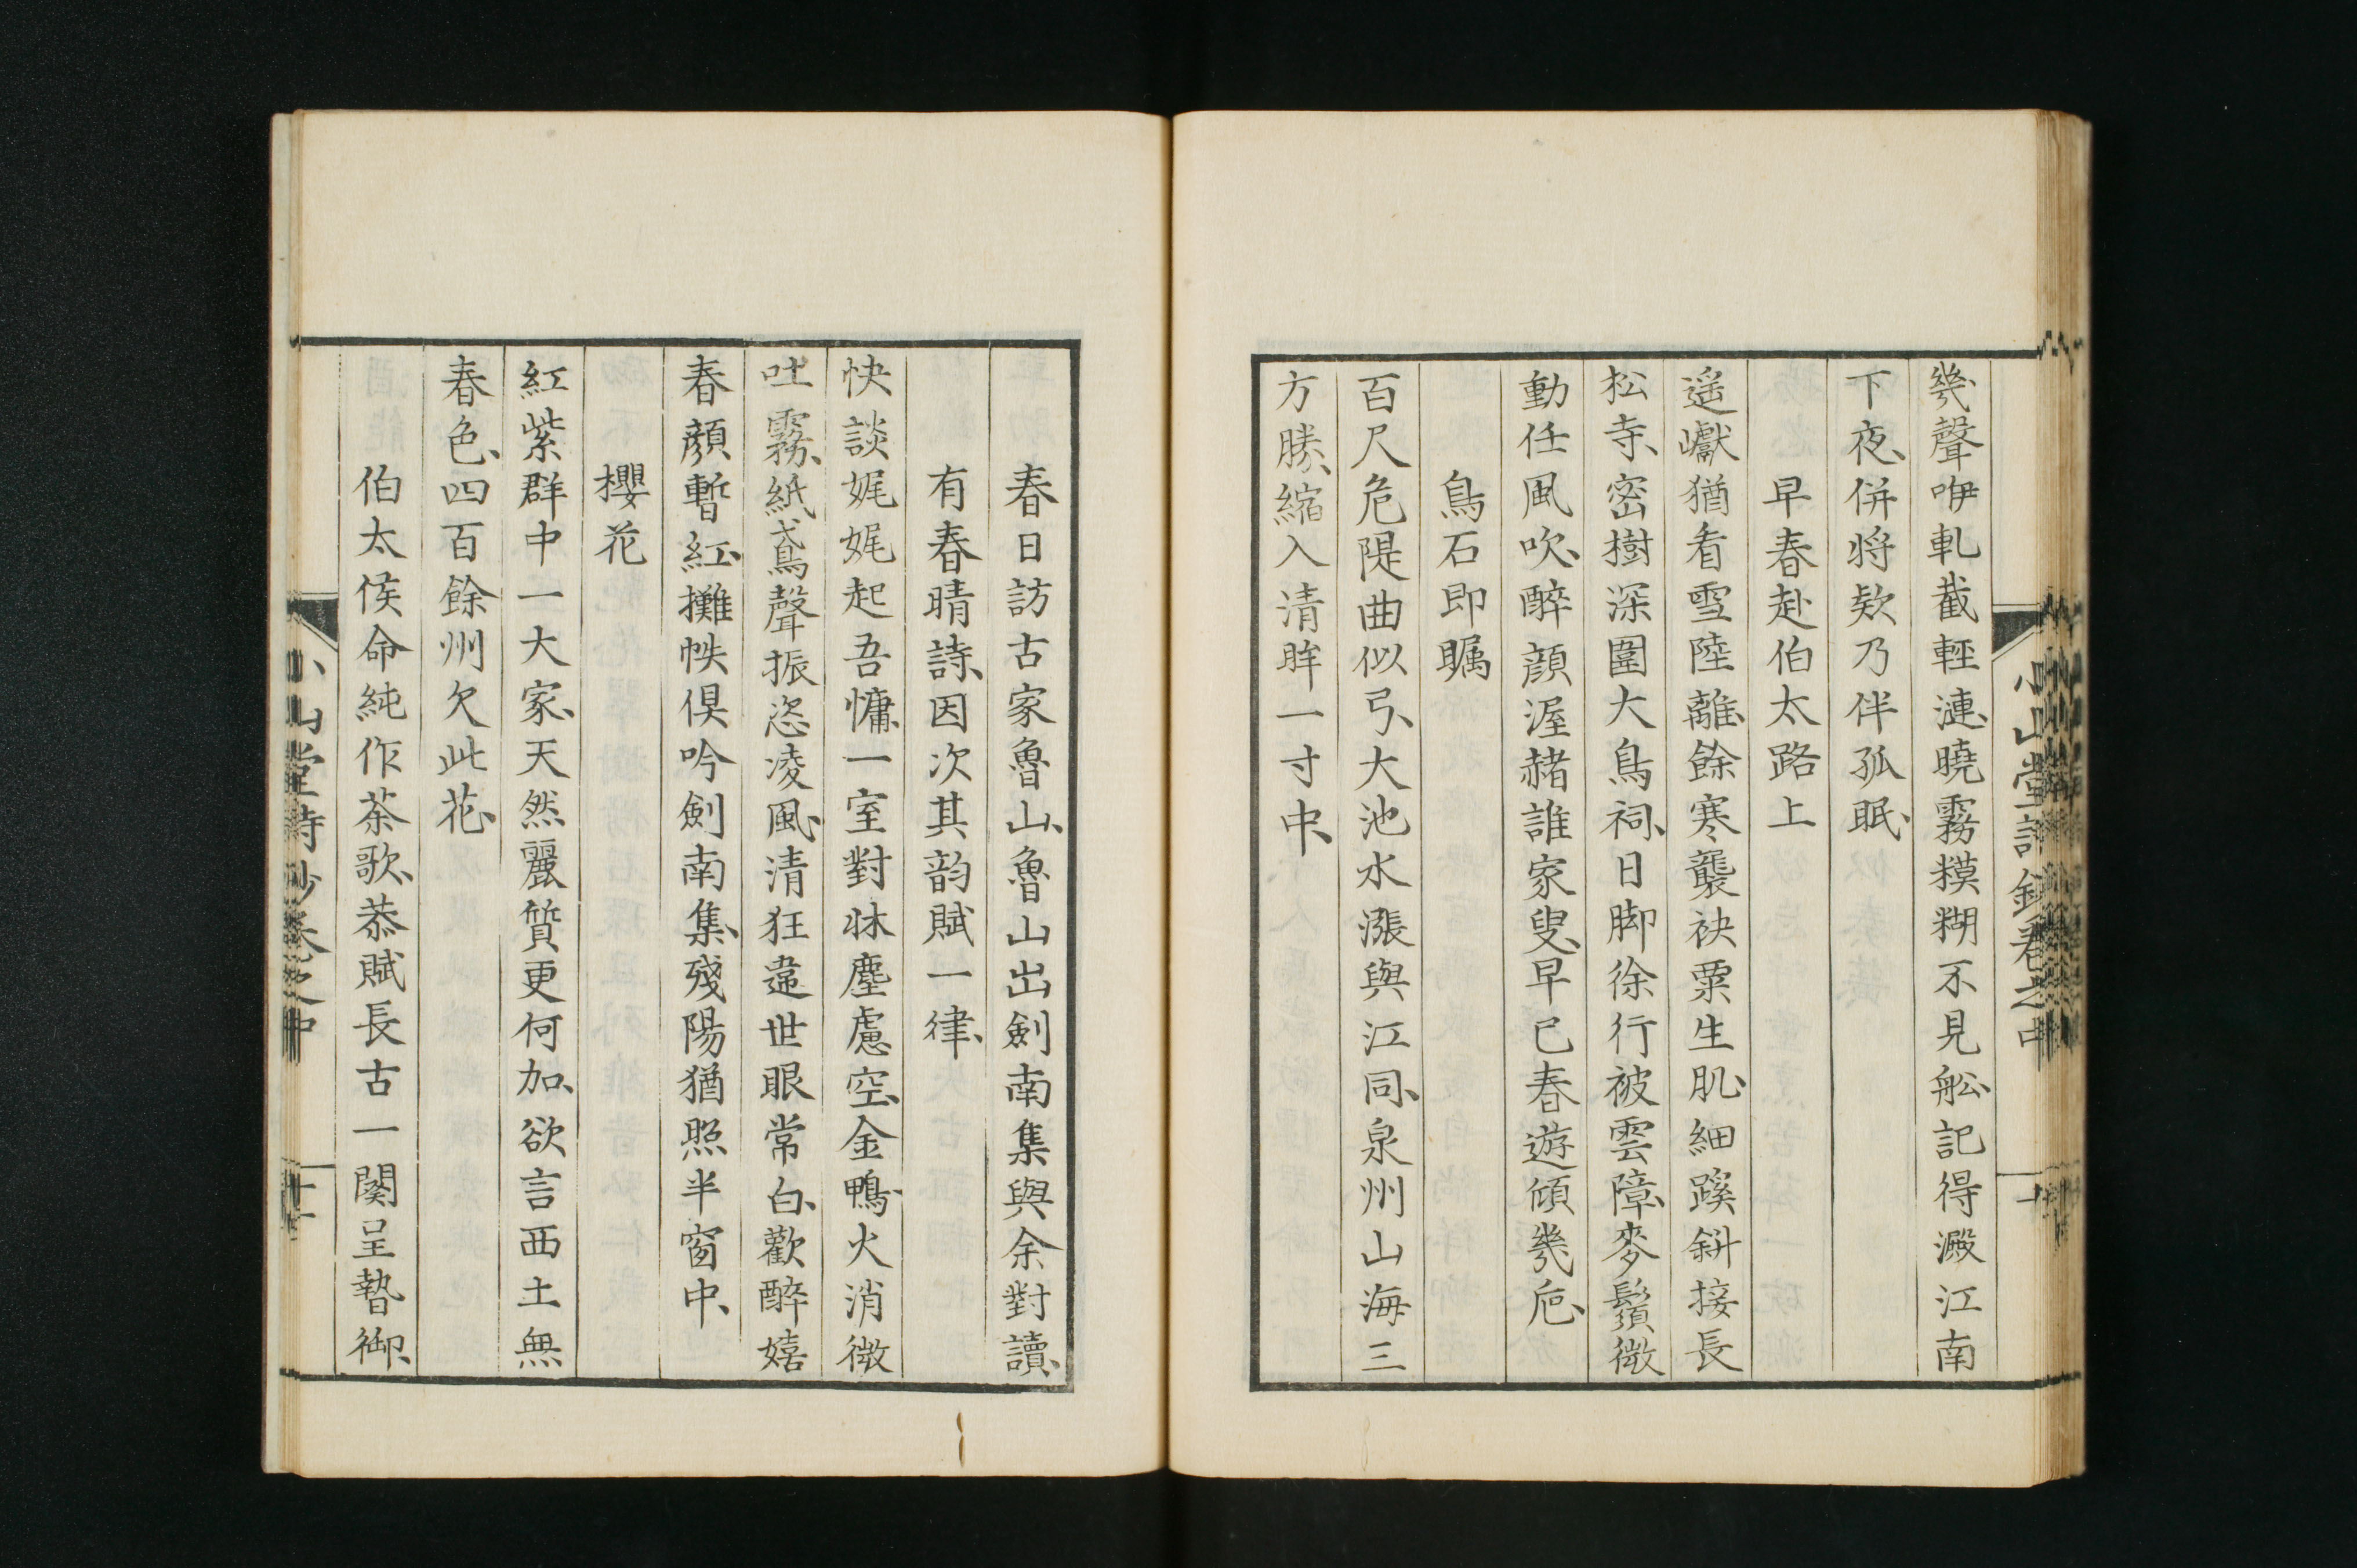 幾聲咿軋截輕漣、曉霧糢糊不見舩、記得澱江南
下夜、併将欸乃伴孤眠、
早春赴伯太路上
遥巘猶看雪陸離、餘寒襲袂粟生肌、細蹊斜接長
松寺、密樹深圍大鳥祠、日脚徐行被雲障、麥鬚微
動任風吹、醉顔渥赭誰家叟、早已春遊傾幾巵、
鳥石即矚
百尺危隄曲似弓、大池水漲與江同、泉州山海三
方勝、縮入清眸一寸中、
小山堂詩鈔卷之中
春日訪古家魯山、魯山出劍南集與余對讀、
有春晴詩、因次其韵賦一律、
快談娓娓起吾慵、一室對牀塵慮空、金鴨火消微
吐霧、紙鳶聲振恣凌風、清狂違世眼常白、歡醉嬉
春顔暫紅、攤帙倶吟劍南集、殘陽猶照半窗中、
櫻花
紅紫群中一大家、天然麗質更何加、欲言西土無
春色、四百餘州欠此花、
伯太侯命純作茶歌、恭賦長古一闋呈暬御、
小山堂詩鈔卷之中